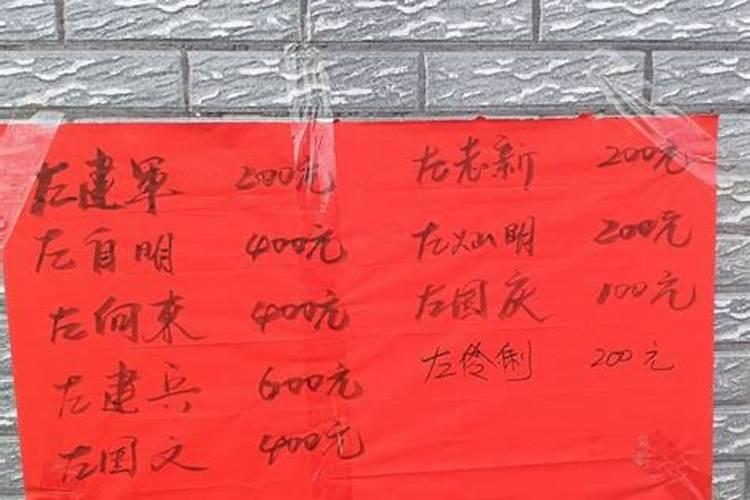 左建軍 200元
左自明 400元
左向来 400元
左建兵 600元
左国文 400元
左志新 200元
左灿明 200元
左国庆 100元
左伶俐 200元